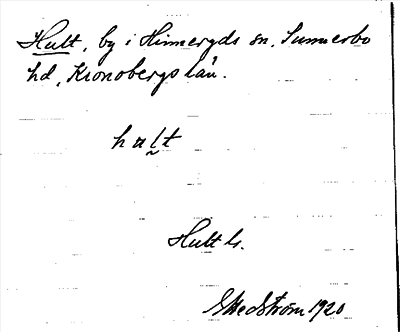 Hult, by i Hinneryds sn, Sunnerbo
hd, Kronobergs län.
halt
Hult ls.
GHedström 1920